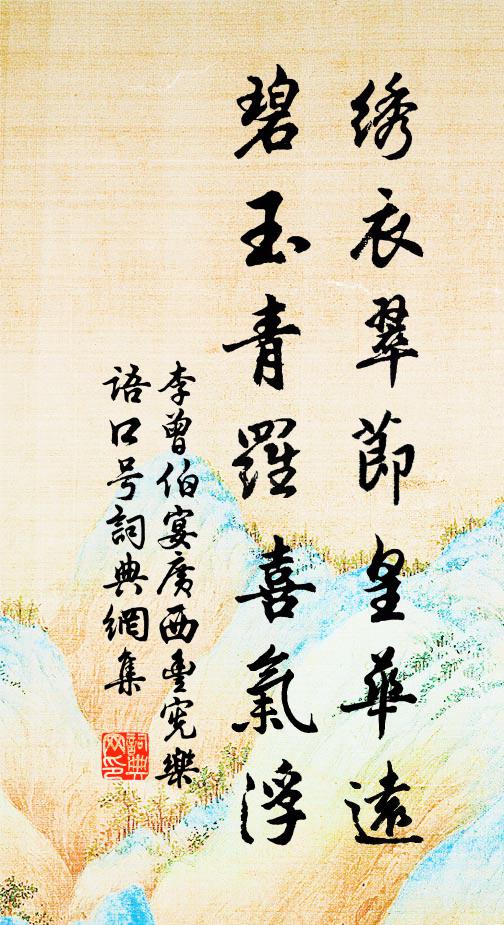 绣衣翠節皇華遠
碧玉青羅喜氣浮
李曾伯宴廣西豊宪樂
語口号詞典網集
詞典
网印